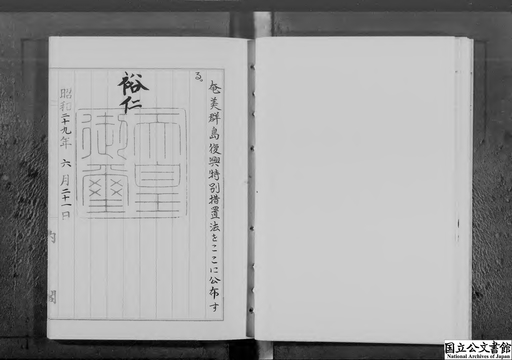 奄美群島復興特別措置法をここに公布す
る。
裕仁
天皇御璽
昭和二十九年六月二十一日
内閣
国立公文書館
National Archives of Japan